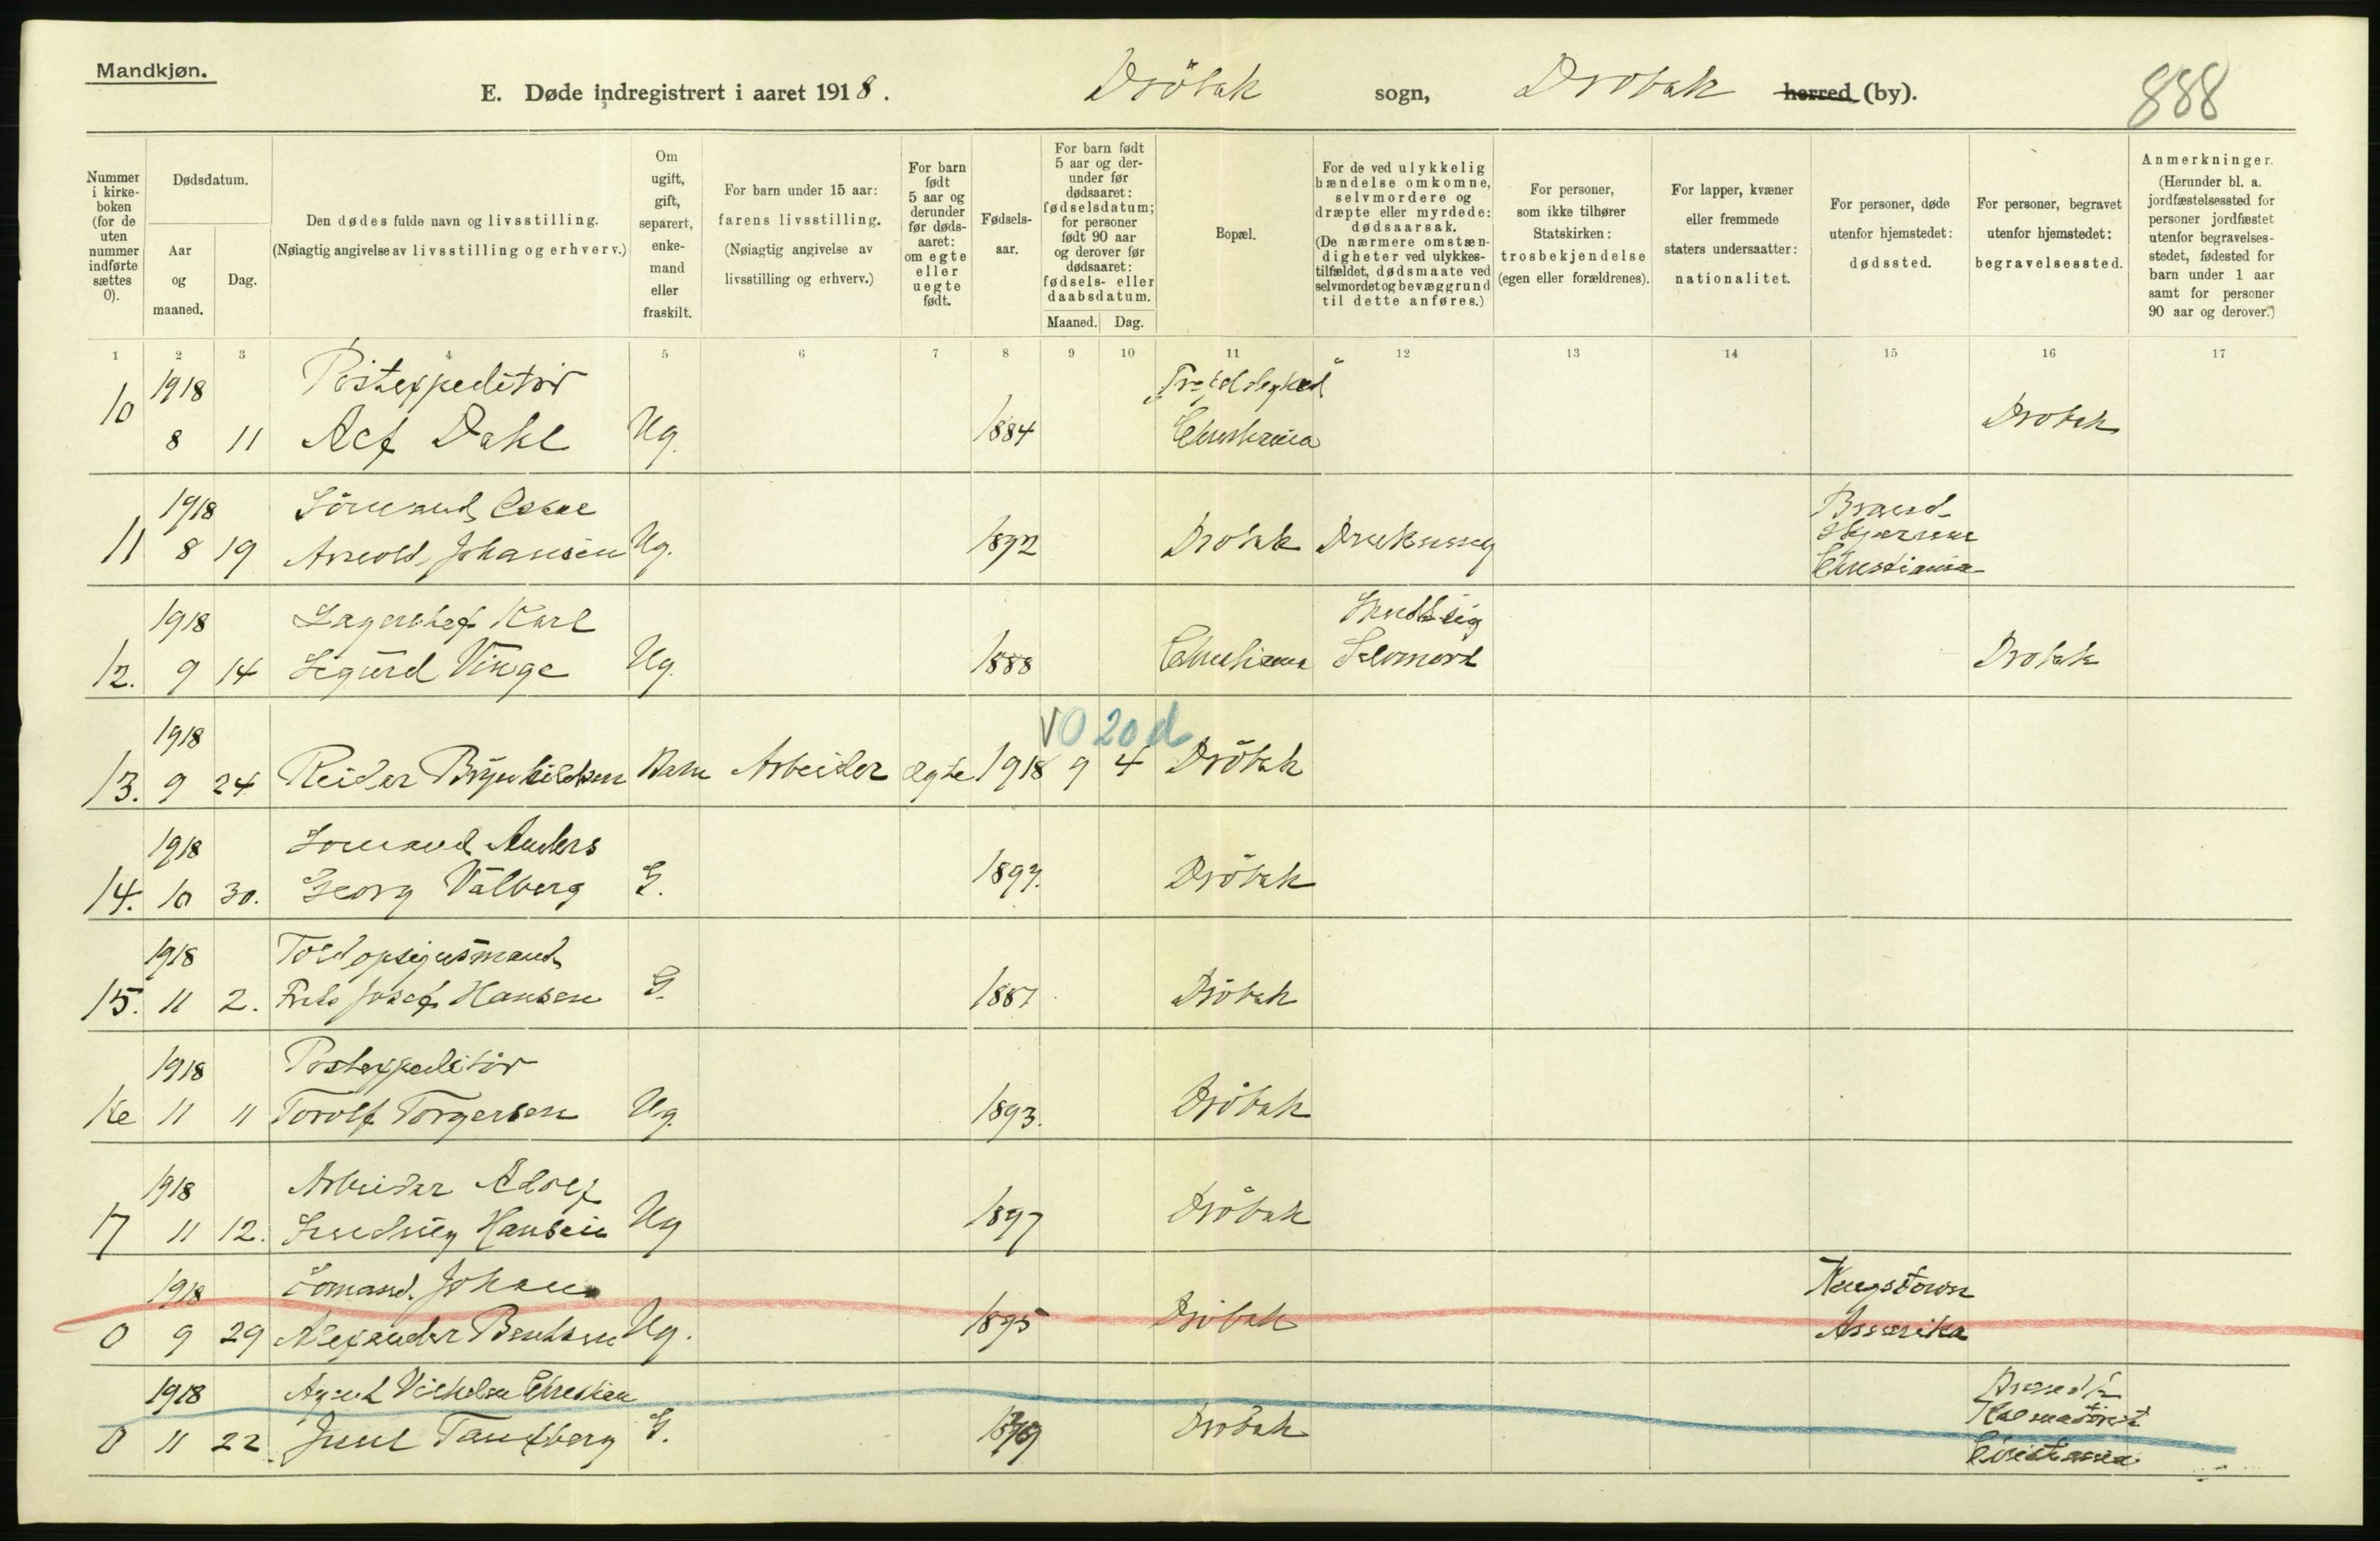 Mandkjøn.
E. Døde indregistrert i aaret 1918. Dröbak sogn, Drobak herred (by). 888
Nummer i kirkeboken (for de uten nummer indførte sættes 0).
Dødsdatum.
Aar og maaned.
Dag.
Den dødes fulde navn og livsstilling.
(Nøiagtig angivelse av livsstilling og erhverv.)
Om ugift, gift, separert, enkemand eller fraskilt.
For barn under 15 aar: farens livsstilling.
(Nøiagtig angivelse av livsstilling og erhverv.)
For barn født 5 aar og derunder før dødsaaret: om egte eller uegte født.
Fødselsaar.
For barn født 5 aar og derunder før dødsaaret: fødselsdatum; for personer født 90 aar og derover før dødsaaret: fødsels- eller daabsdatum.
Maaned. Dag.
Bopæl.
For de ved ulykkelig hændelse omkomne, selvmordere og dræpte eller myrdede: dødsaarsak.
(De nærmere omstændigheter ved ulykkestilfældet, dødsmaate ved selvmordet og bevæggrund til dette anføres.)
For personer, som ikke tilhører Statskirken: trosbekjendelse (egen eller forældrenes).
For lapper, kvæner eller fremmede staters undersaatter: nationalitet.
For personer, døde utenfor hjemstedet: dødssted.
For personer, begravet utenfor hjemstedet: begravelsessted.
Anmerkninger.
(Herunder bl. a. jordfæstelsessted for personer jordfæstet utenfor begravelsesstedet, fødested for barn under 1 aar samt for personer 90 aar og derover.)
1 2 3 4 5 6 7 8 9 10 11 12 13 14 15 16 17
1918 Postexpeditör
10 8 11 Alf Dahl Ug. 1884 Christiania Drobak
1918 Sömand, Oskar Brand
11 8 19 Arnold Johansen Ug. 1892 Drobak Drukning Skjærene
Christiania
1918 Lagerchef Karl
12. 9 14 Sigurd Vinge Ug. 1888 Christiania Selvmord Drobak
V 0 20 d
1918
13. 9 24 Reidar Brynhildsen Barn Arbeider ægte 1918 9 4 Dröbak
1918 Sömand Anders
14. 10 30. Georg Valberg G. 1897. Dröbak
1918 Toldopsynsmand
15. 11 2. Frits Josef Hansen G. 1887 Dröbak
1918 Postexpeditör
16 11 11 Torolf Torgersen Ug. 1893. Dröbak
1918 Arbeider Adolf
17 11 12. Ludvig Hansen Ug 1897 Dröbak
1918 Sömand. Johan Kingstown
0 9 29 Alexander Bentsen Ug. 1895 Dröbak Amerika
1918 Agent Vilhelm Christian
0 11 22 Juul Tandberg G. Drobak
Christiania